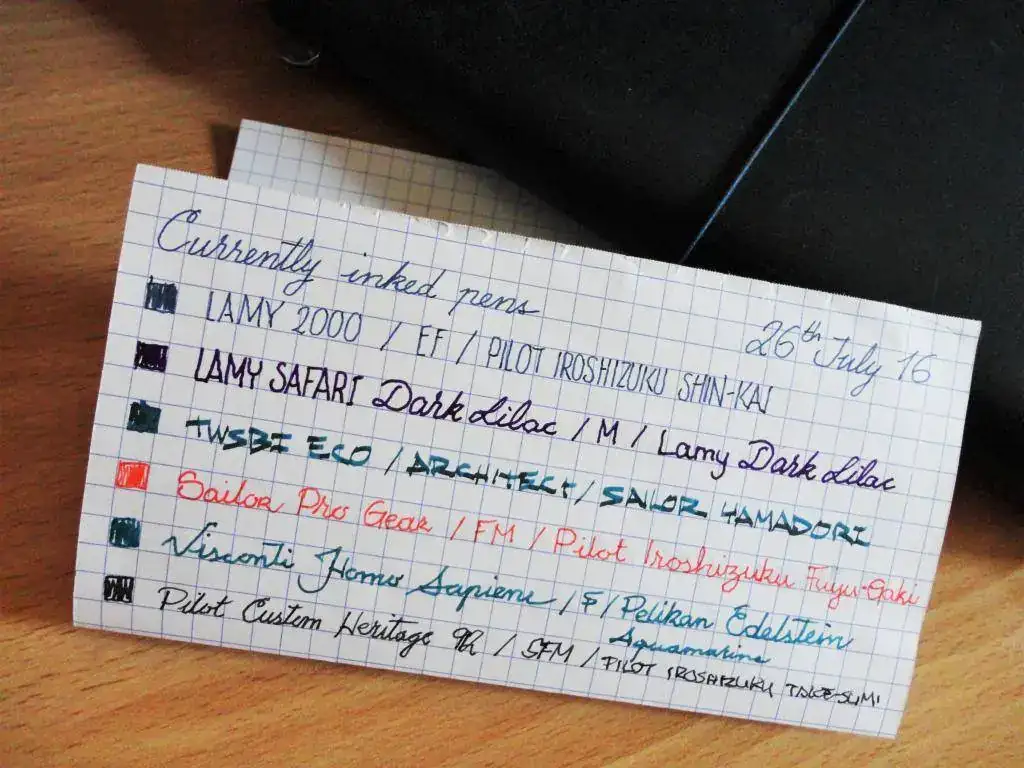 Currently inked pens
26th July 16
LAMY 2000 / EF / PILOT IROSHIZUKU SHIN-KAI
LAMY SAFARI Dark Lilac / M / Lamy Dark Lilac
TWSBI ECO / ARCHITECT / SAILOR YAMADORI
Sailor Pro Gear / FM / Pilot Iroshizuku Fuyu-Gaki
Visconti Homo Sapiens / F / Pelikan Edelstein
Aquamarine
Pilot Custom Heritage 92 / SFM / PILOT IROSHIZUKU TAKE-SUMI